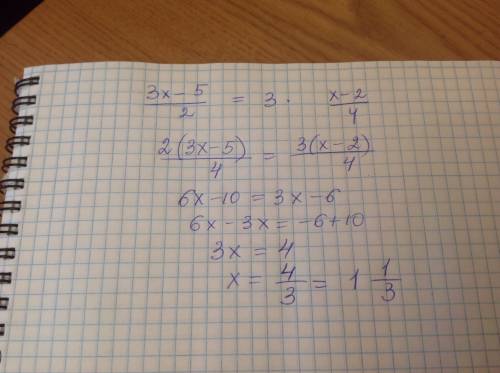 (3x-5)/2 = 3 · (x-2)/4
2(3x-5)/4 = 3(x-2)/4
6x-10 = 3x-6
6x-3x = -6+10
3x = 4
x = 4/3 = 1 1/3